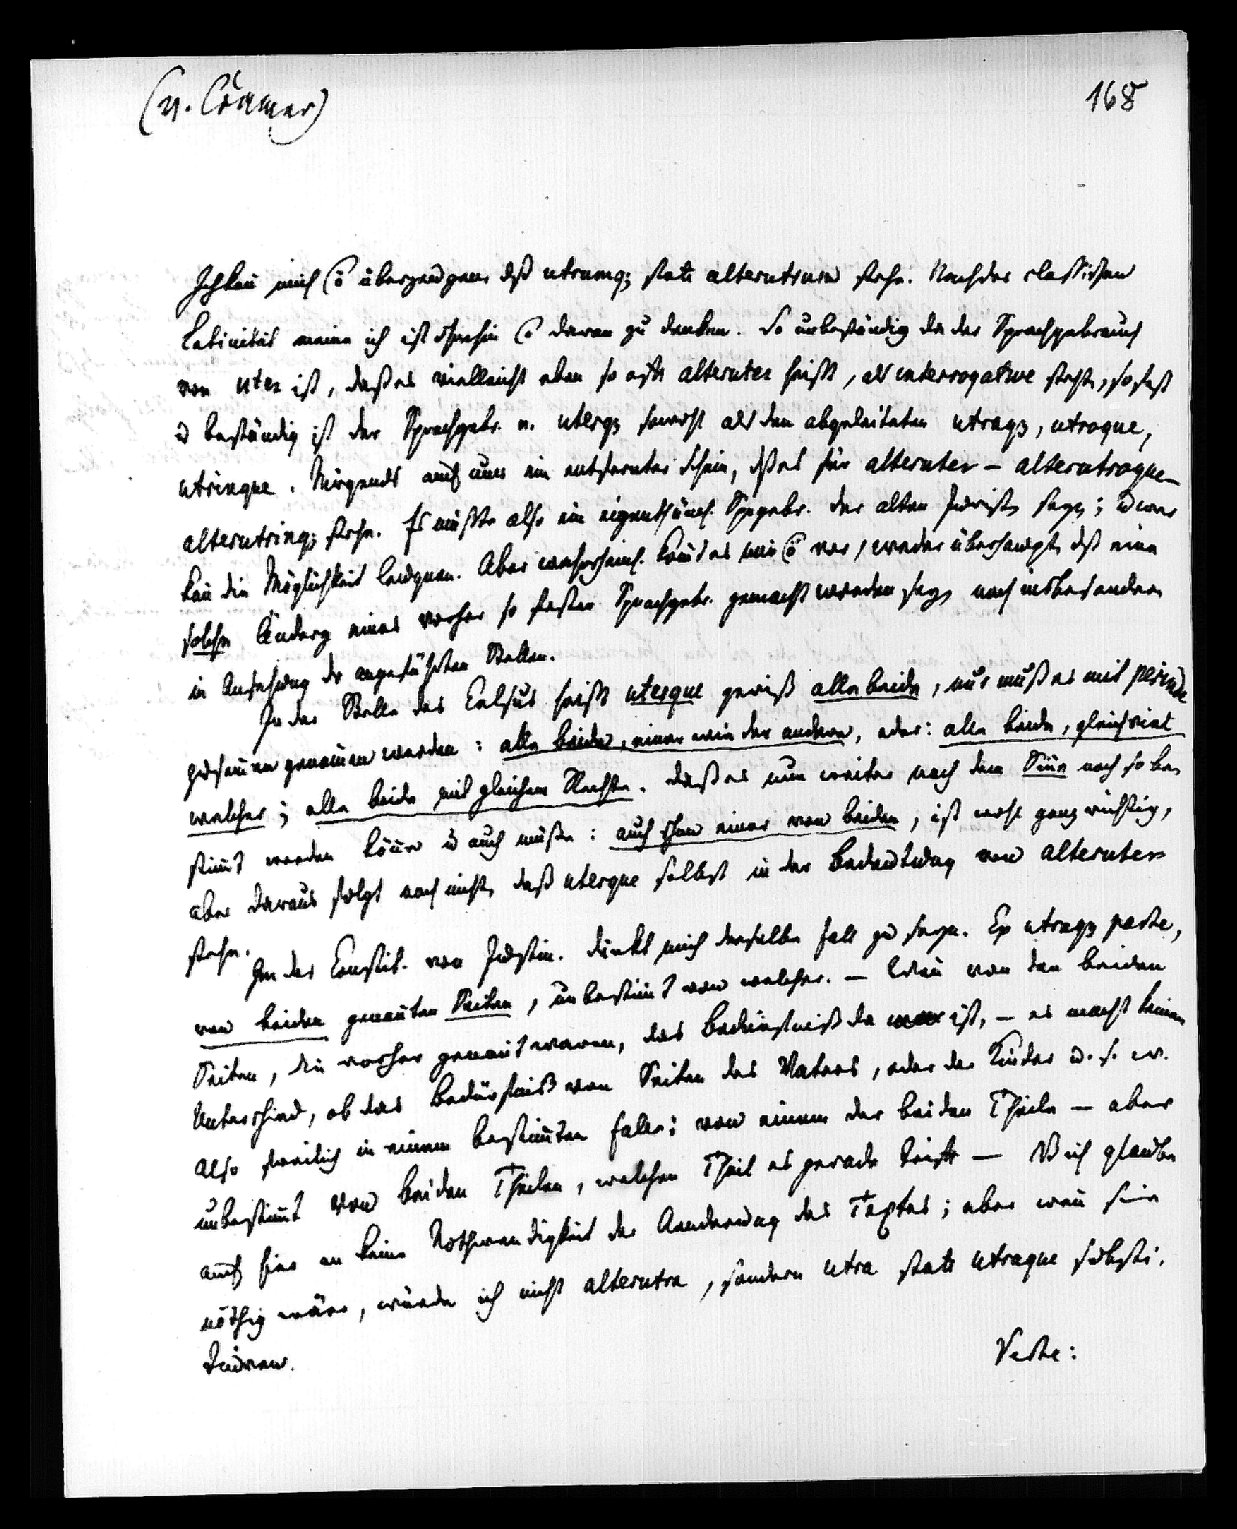 (v. Cramer)
168
Ich kan̄ mich überzeugen, dß utrumq; statt alterutrum stehe. Nach der classischen
Latinität meine ich ist ohnehin daran zu denken. So unbeständig da der Sprachgebrauch
von uter ist, daß es vielleicht eben so oft alteruter heißt, als interrogative steht, so fest
u beständig ist der Sprachgebr. v. uterq; sowohl als den abgeleiteten utraq;, utroque,
utrinque. Nirgends auch nur ein entfernter Schein, dß es für alteruter – alterutroque
alterutrinq; stehe. Es müßte also ein eigenthüml. Spgebr. der alten Jurist seyn; u wer
kan̄ die Möglichkeit leugnen. Aber wahrscheinl. kom̄t es mir vor, weder überhaupt, dß eine
solche Änderg eines vorher so festen Sprachgebr. gemacht worden sey, noch insbesondere
in Ansehung der angeführten Stellen.
In der Stelle des Celsus heißt uterque gewiß alle beide, nur muß es mit perinde
zusam̄en genom̄en werden: alle beide, einer wie der andere, oder: alle beide, gleichviel
welcher; alle beide mit gleichem Rechte. Daß es nun weiter nach dem Sin̄e noch so be-
stim̄t werden kön̄e u auch müße: auch schon einer von beiden, ist wohl ganz richtig,
aber daraus folgt noch nicht, daß uterque selbst in der Bedeutung von alteruter
stehe.
In der Constit. von Justin. dünkt mich derselbe Fall zu seyn. Ex utraq; parte,
von beiden genan̄ten Seiten, unbestim̄t von welcher. – Wen̄ von den beiden
Seiten, die vorher genan̄t waren, das Bedürfniß da ist, – es macht keinen
Unterschied, ob das Bedürfniß von Seiten des Vaters, oder der Kinder u. s. w.
Also freilich in einem bestim̄ten Falle: von einem der beiden Theile – aber
unbestim̄t von beiden Theilen, welchen Theil es gerade trifft – Ich glaube
auch hier an keine Nothwendigkeit der Aenderung des Textes; aber wen̄ sie
nöthig wäre, würde ich nicht alterutra, sondern utra statt utraque substi-
tuiren.